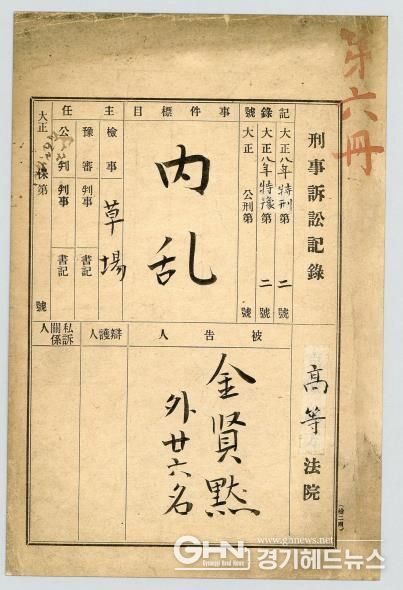 第六冊
刑事訴訟記録
高等法院
記録號
大正八年特刑第二號
大正八年特豫第二號
大正 公刑第 號
事件標目
内乱
主任
檢事 草場
豫審判事 書記
公判判事 書記
大正 保第 號
被告人
金賢黙
外廿六名
辯護人
私訴關係人
www.ghnews.net
GHN
Gyeonggi Head News
경기헤드뉴스